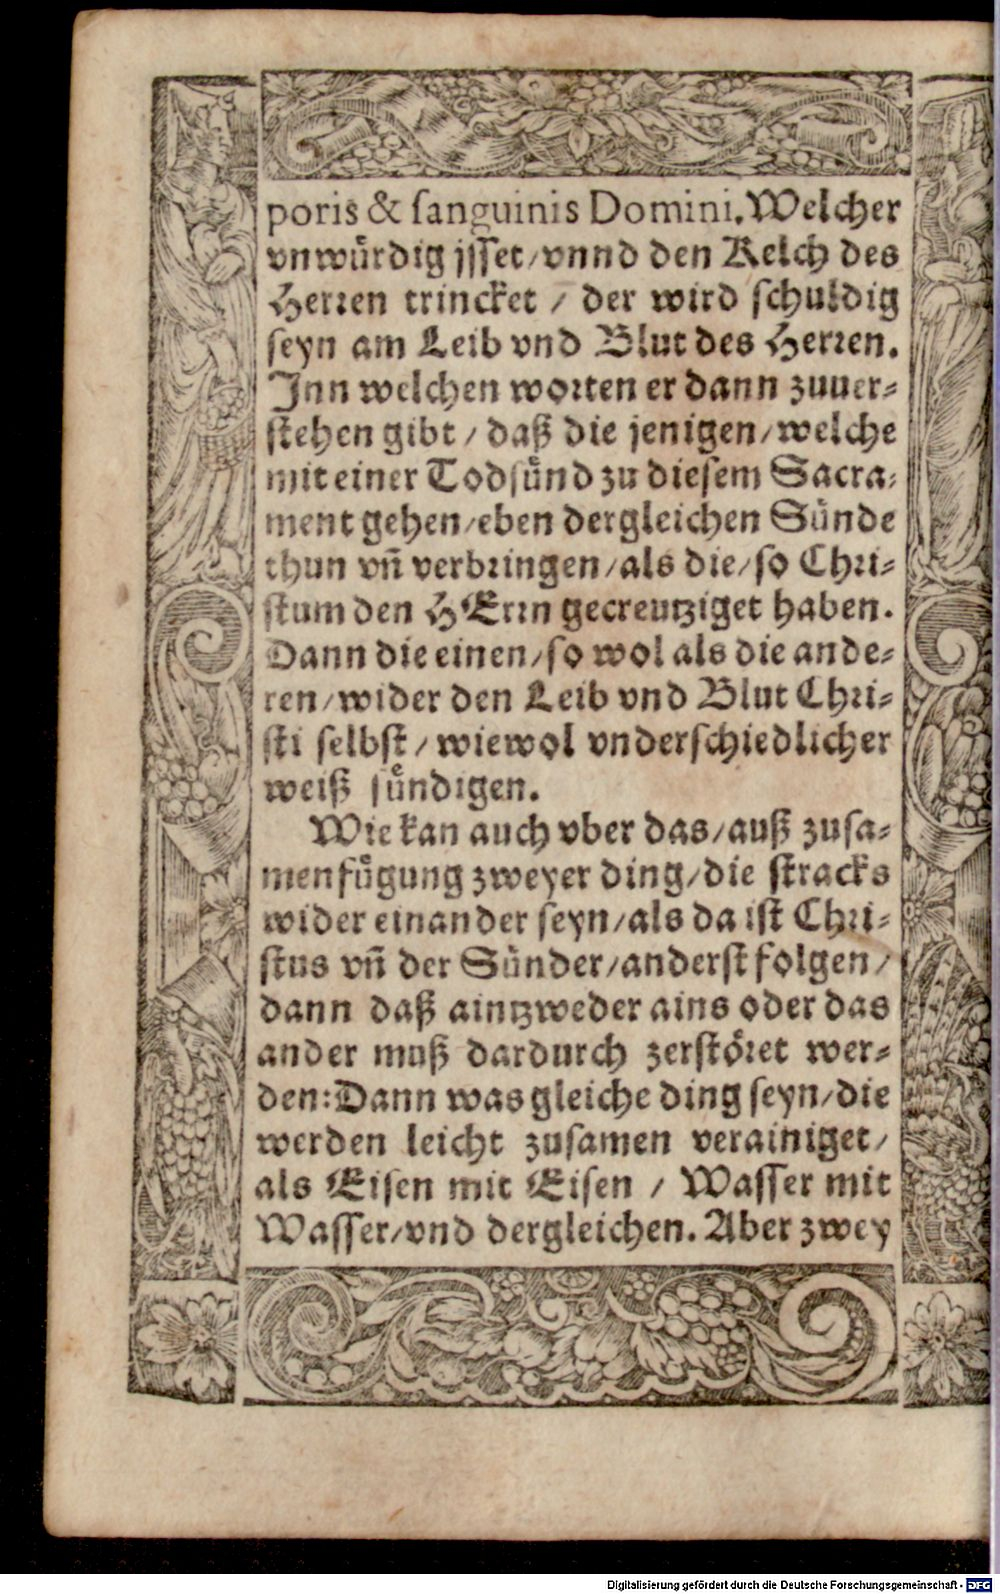 poris & ſanguinis Domini. Welcher
vnwuͤrdig jſſet/vnnd den Kelch des
Herꝛen trincket / der wird ſchuldig
ſeyn am Leib vnd Blut des Herꝛen.
Jnn welchen woꝛten er dann zuuer⸗
ſtehen gibt / daß die jenigen/welche
mit einer Todſuͤnd zu dieſem Sacra⸗
ment gehen/eben dergleichen Suͤnde
thun vñ verbꝛingen/als die/ſo Chꝛi⸗
ſtum den HErꝛn gecreutziget haben.
Dann die einen/ſo wol als die ande⸗
ren/wider den Leib vnd Blut Chꝛi⸗
ſti ſelbſt / wiewol vnderſchiedlicher
weiß ſuͤndigen.
Wie kan auch vber das/auß zuſa⸗
menfuͤgung zweyer ding/die ſtracks
wider einander ſeyn/als da iſt Chꝛi⸗
ſtus vñ der Suͤnder/anderſt folgen/
dann daß aintzweder ains oder das
ander muß dardurch zerſtoͤꝛet wer⸗
den: Dann was gleiche ding ſeyn/die
werden leicht zuſamen verainiget/
als Eiſen mit Eiſen / Waſſer mit
Waſſer/vnd dergleichen. Aber zwey
Digitalisierung gefördert durch die Deutsche Forschungsgemeinschaft - DFG